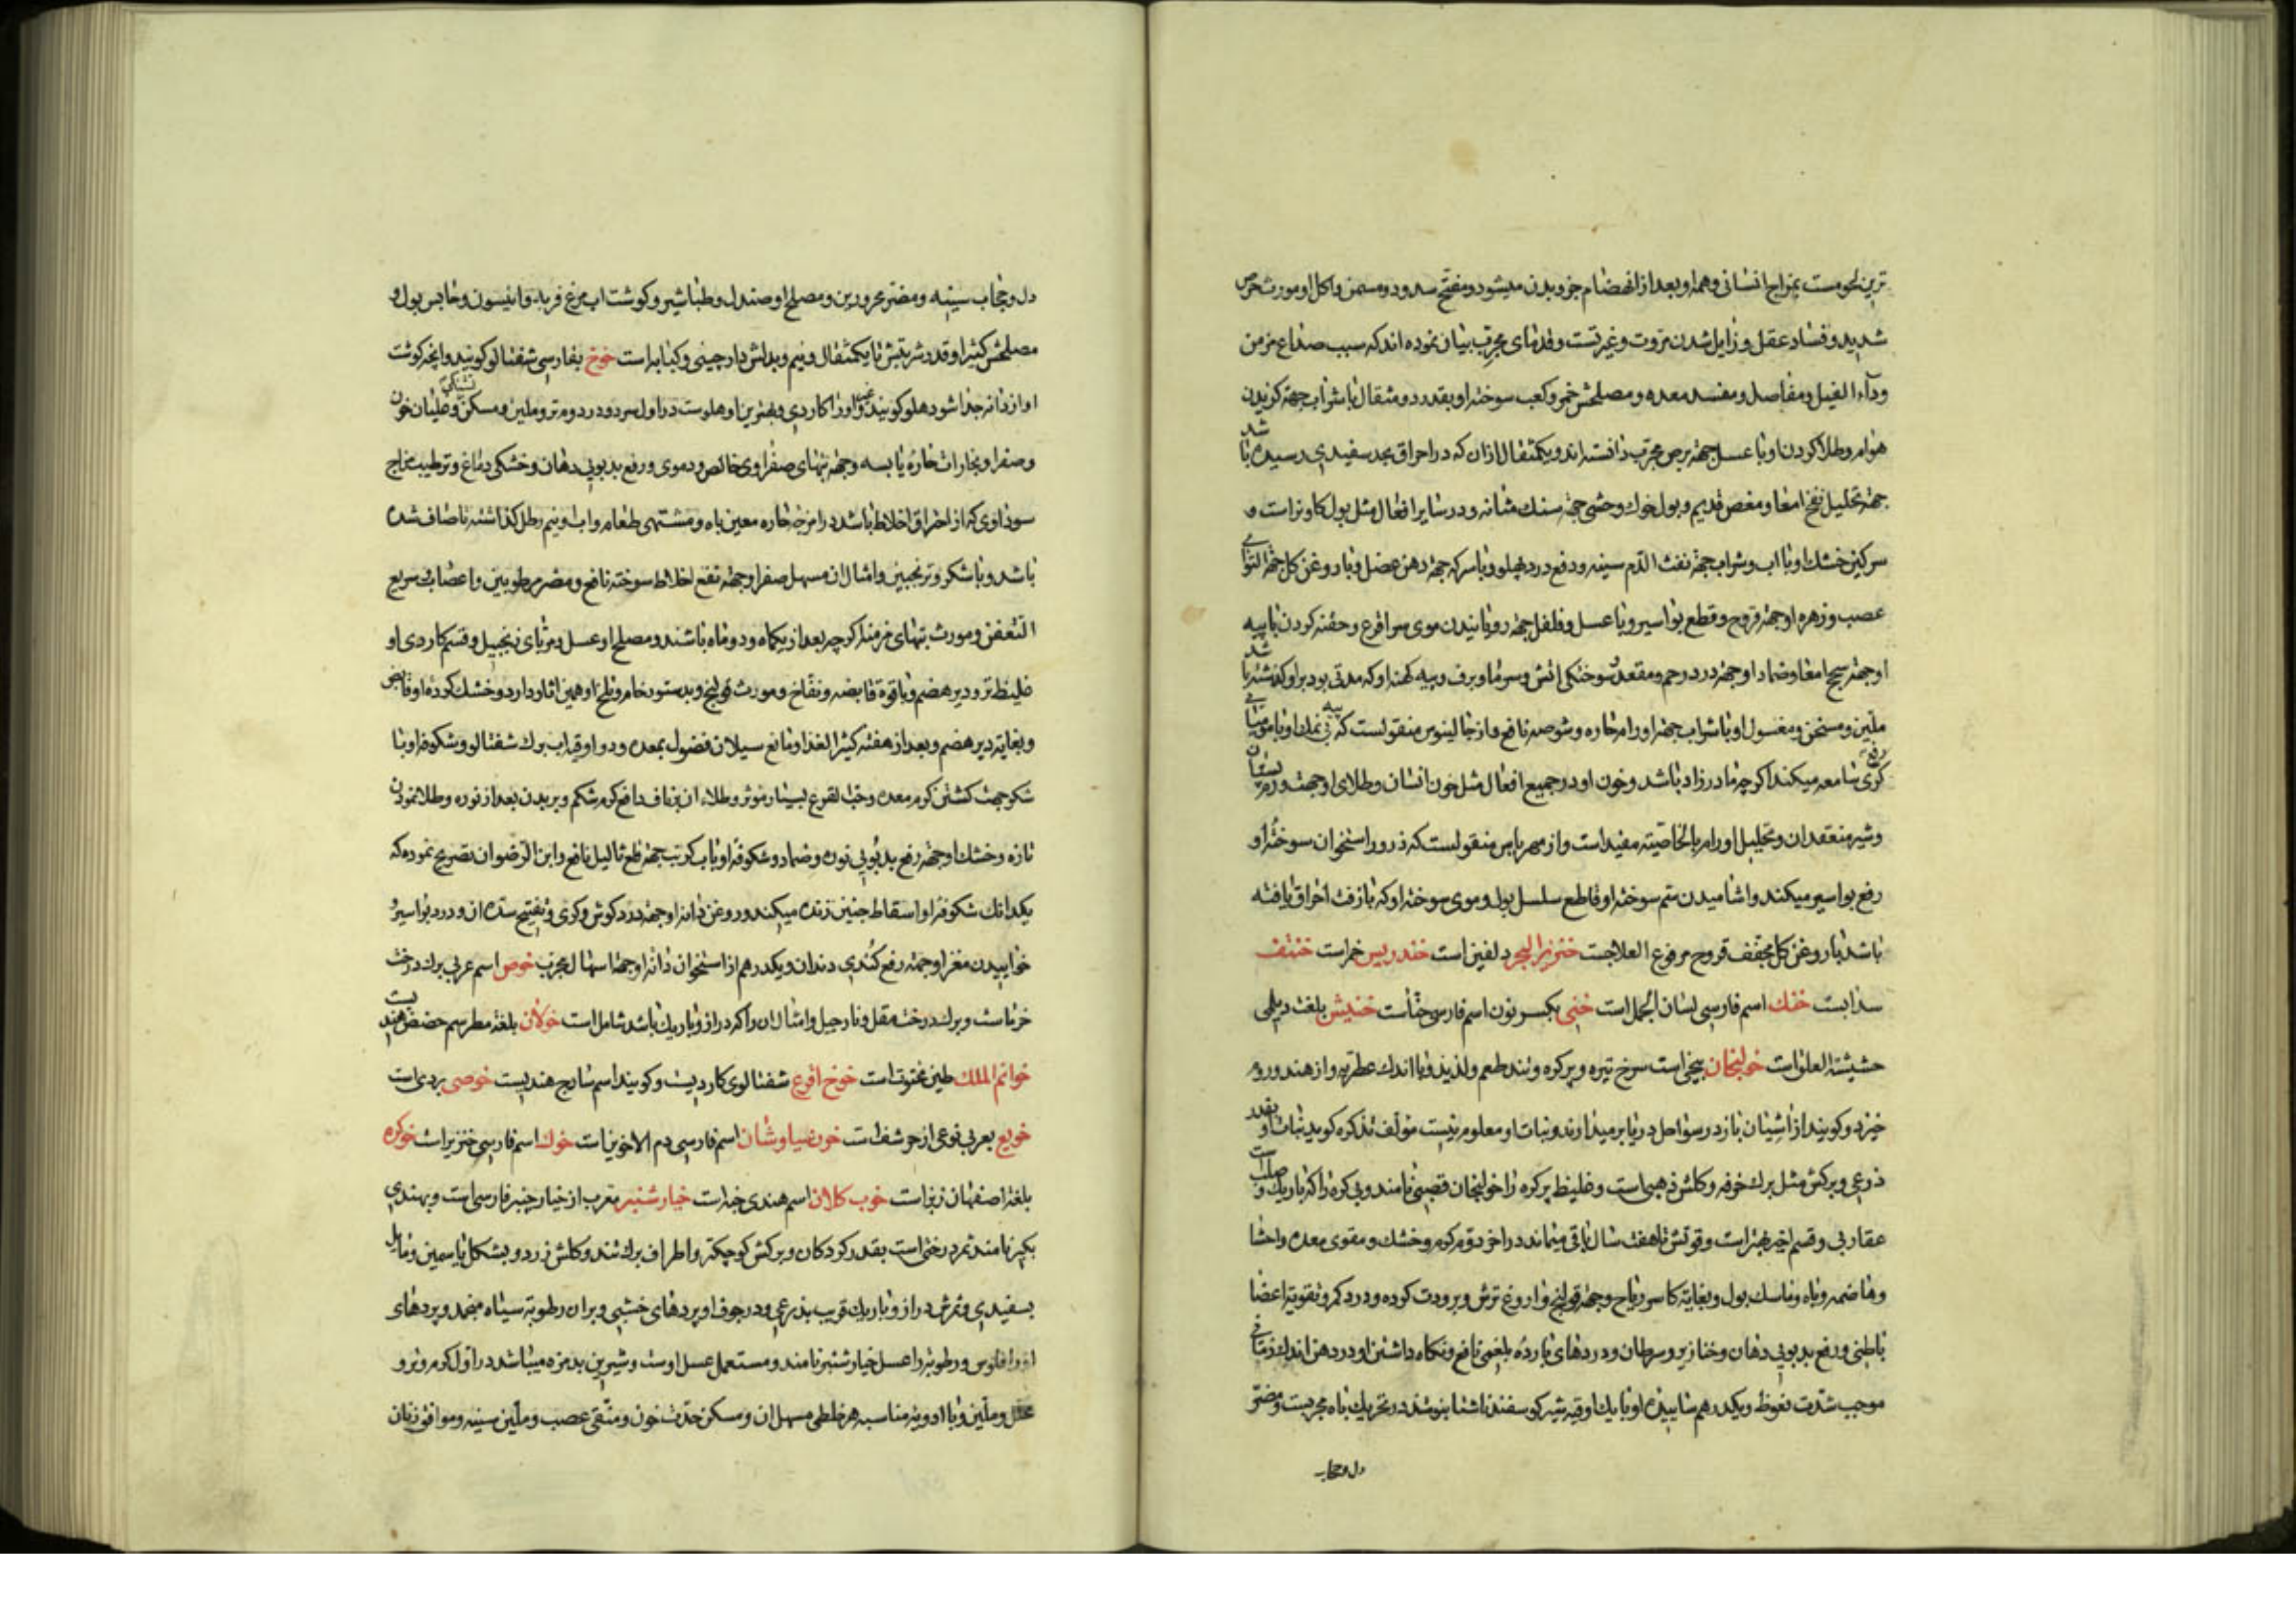 ترین لحومست بمزاج انسانی و همه او بعد از انهضام جزو بدن میشود و مفتح سدد و مسمن و اکل او مورث حرص
شدید و فساد عقل و زایل شدن مروت و غیرتست و قدمای مجرب بیان نموده اند که سبب صداع مزمن
و داء الفیل و مفاصل و مفسد معده و مصلحش خمر و کعب سوخته او بقدر دو مثقال با شراب جهة کزیدن
هوام و طلا کردن او با عسل جهة برص مجرب دانسته اند و یکمثقال ازان که در احراق بحد سفیدی رسیده باشد
جهة تحلیل نفخ امعا و مغص قدیم و بول خوک وحشی جهة سنک مثانه و در سایر افعال مثل بول کاو نر است و
سرکین خشک او با آب و شراب جهة نفث الدم سینه و دفع درد پهلو و با سرکه جهة دهن عضل و با روغن کل جهة التوای
عصب و زهره او جهة قروح و قطع بواسیر و با عسل و فلفل جهة رویانیدن موی سر اقرع و حقنه کردن با پیه
او جهة سحج امعا و ضماد او جهة درد رحم و مقعد و سوختکی اتش و سرما و برف و پیه کهنه او که مدتی بود بر او کذشته باشد
ملین و مسخن و مغسول او با شراب جهة اورام حاره و شوصه نافع و از جالینوس منقولست که پیه بی نمک او با مومیائی
رفع کری سامعه میکند اکرچه مادرزاد باشد و خون او در جمیع افعال مثل خون انسان و طلای او جهت ورم پستان
و شیر منعقد ان و تحلیل اورام بالخاصیته مفید است و از مهراریس منقولست که ذرور استخوان سوخته او
رفع بواسیر میکند و اشامیدن سم سوخته او قاطع سلسل بول و موی سوخته او که با زفت احراق یافته
باشد با روغن کل مجفف قروح مرفوع العلاجست خنزیر البحر دلفین است خندریس خمر است خنتف
سدابست خنک اسم فارسی لسان الحمل است خنی بکسر نون اسم فارسی حنا است خنیش بلغت دیلمی
حشیشة العلق است خولنجان بیخی است سرخ تیره و پرکره و تند طعم و لذیذ و با اندک عطریه و از هند و روم
خیزد و کویند از اشیان باز در سواحل دریا برمیدارند و نبات او معلوم نیست مؤلف تذکره کوید نبات او بقدر
ذرعی و برکش مثل برک خرفه و کلش ذهبی است و غلیظ پرکره را خولنجان قصبی نامند و بی کره را که باریک و صلب است
عقاربی و قسم اخیر بهتر است و قوتش تا هفت سال باقی میماند در اخر دوم کرم و خشک و مقوی معده و احشا
و هاضمه و باه و ماسک بول و بغایة کاسر ریاح و جهة قولنج و اروغ ترش و برودت کرده و درد کمر و تقویة اعضا
باطنی و رفع بدبویی دهان و خنازیر و سرطان و دردهای بارده بلغمی نافع و نکاه داشتن او در دهن اندک زمانی
موجب شدت نعوظ و یکدرهم ساییده او با یک اوقیه شیر کوسفند ناشتا بنوشند در تحریک باه مجربست و مضر
دل و حجاب
دل و حجاب سینه و مضر محرورین و مصلح او صندل و طباشیر و کوشت اب مرغ فربه و انیسون و حابس بول و
مصلحش کثیرا و قدر شربتش تا یکمثقال و نیم و بدلش دارچینی و کبابه است خوخ بفارسی شفتالو کویند و انچه کوشت
او از دانه جدا شود هلو کویند و غیر او را کاردی و بهترین او هلوست در اول سرد و در دوم تر و ملین و مسکن تشنکی و غلیان خون
و صفرا و بخارات حاره یابسه و جهة تبهای صفراوی خالص و دموی و رفع بدبویی دهان و خشکی دماغ و ترطیب مزاج
سوداوی که از احتراق اخلاط باشد در امزجه حاره معین باه و مشتهی طعام و اب او نیم رطل کذاشته تا صاف شده
باشد و با شکر و ترنجبین و امثال ان مسهل صفرا و جهة نفع اخلاط سوخته نافع و مضر مرطوبین و اعصاب سریع
التعفن و مورث تبهای مزمنه اکرچه بعد از یکماه و دو ماه باشند و مصلح او عسل و مربای زنجبیل و قسم کاردی او
غلیظ تر و دیر هضم و با قوة قابضه و نفاخ و مورث قولنج و بدستور خام و بلخ او همین اثار دارد و خشک کرده او قابض
و بغایه دیر هضم و بعد از هفته کثیر الغذا و مانع سیلان فضول بمعده و دو اوقیه اب برک شفتالو و شکوفه او با
شکر جهت کشتن کرم معده و حب القرع بسیار موثر و طلاء ان بر ناف دافع کرم شکم و بریدن بعد از نوره و طلا نمودن
تازه و خشک او جهة رفع بدبویی نوره و ضماد و شکوفه او با اب کرنب جهة قلع ثالیل نافع و ابن الرضوان تصریح نموده که
یکدانک شکوفه او اسقاط جنین زنده میکند و روغن دانه او جهة درد کوش و کری و تفتیح سده ان و درد بواسیر و
خواییدن مغز او جهة رفع کندی دندان و یکدرهم از استخوان دانه او جهة اسهال مجرب خوص اسم عربی برک درخت
خرماست و برک درخت مقل و نارجیل و امثال ان را که دراز و باریک باشد شامل است خولان بلغة مطر سم حضض هندیست
خواتم الملک طین مختوم است خوخ اقرع شفتالوی کاردیست و کویند اسم سارج هندیست خوصی بردی است
خویع بعربی نوعی از حرشف است خون سیاوشان اسم فارسی دم الاخوین است خوک اسم فارسی خنزیر است خوکره
بلغة اصفهان زبز است خوب کلان اسم هندی خبه است خیار شنبر معرب از خیار چنبر فارسی است و بهندی
بکبر نامند ثمر درختی است بقدر کردکان و برکش کوچکتر و اطراف برک تند و کلش زرد و بشکل یاسمین و مایل
بسفیدی و ثمرش دراز و باریک قریب بذرعی و در جوف او پردهای خشبی و بران رطوبة سیاه منجمد و پردهای
او را فلوس و رطوبة را عسل خیار شنبر نامند و مستعمل عسل اوست و شیرین بدمزه میباشد در اول کرم و تر و
محلل و ملین و با ادویه مناسبه هر خلطی مسهل ان و مسکن حدت خون و منقی عصب و ملین سینه و موافق زنان